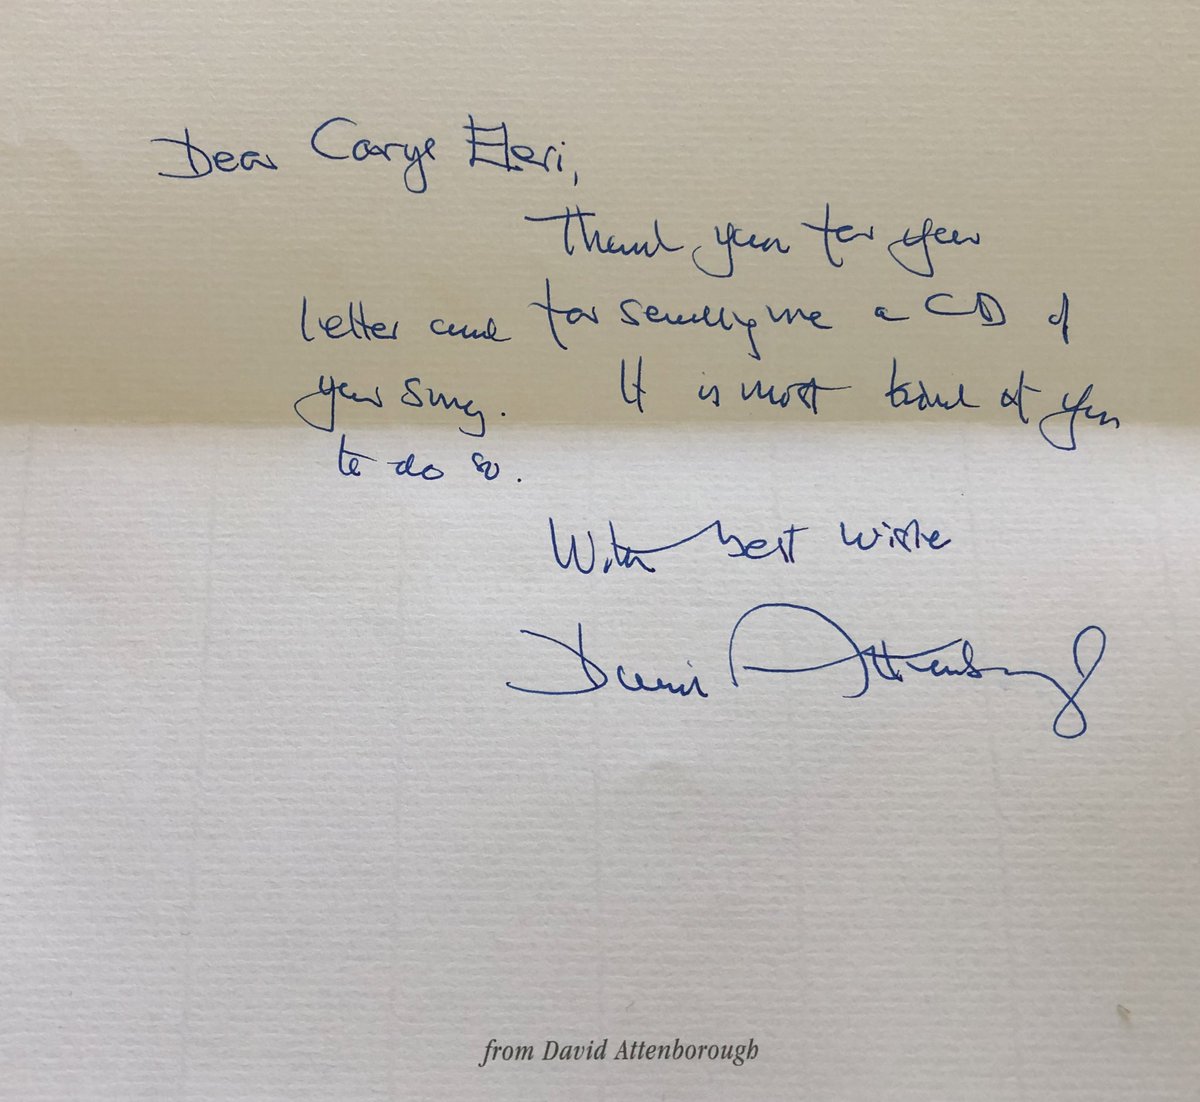 Dear Carys Eleri,
Thank you for your
letter and for sending me a CD of
your song. It is most kind of you
to do so.
With best wishes
David Attenborough
from David Attenborough